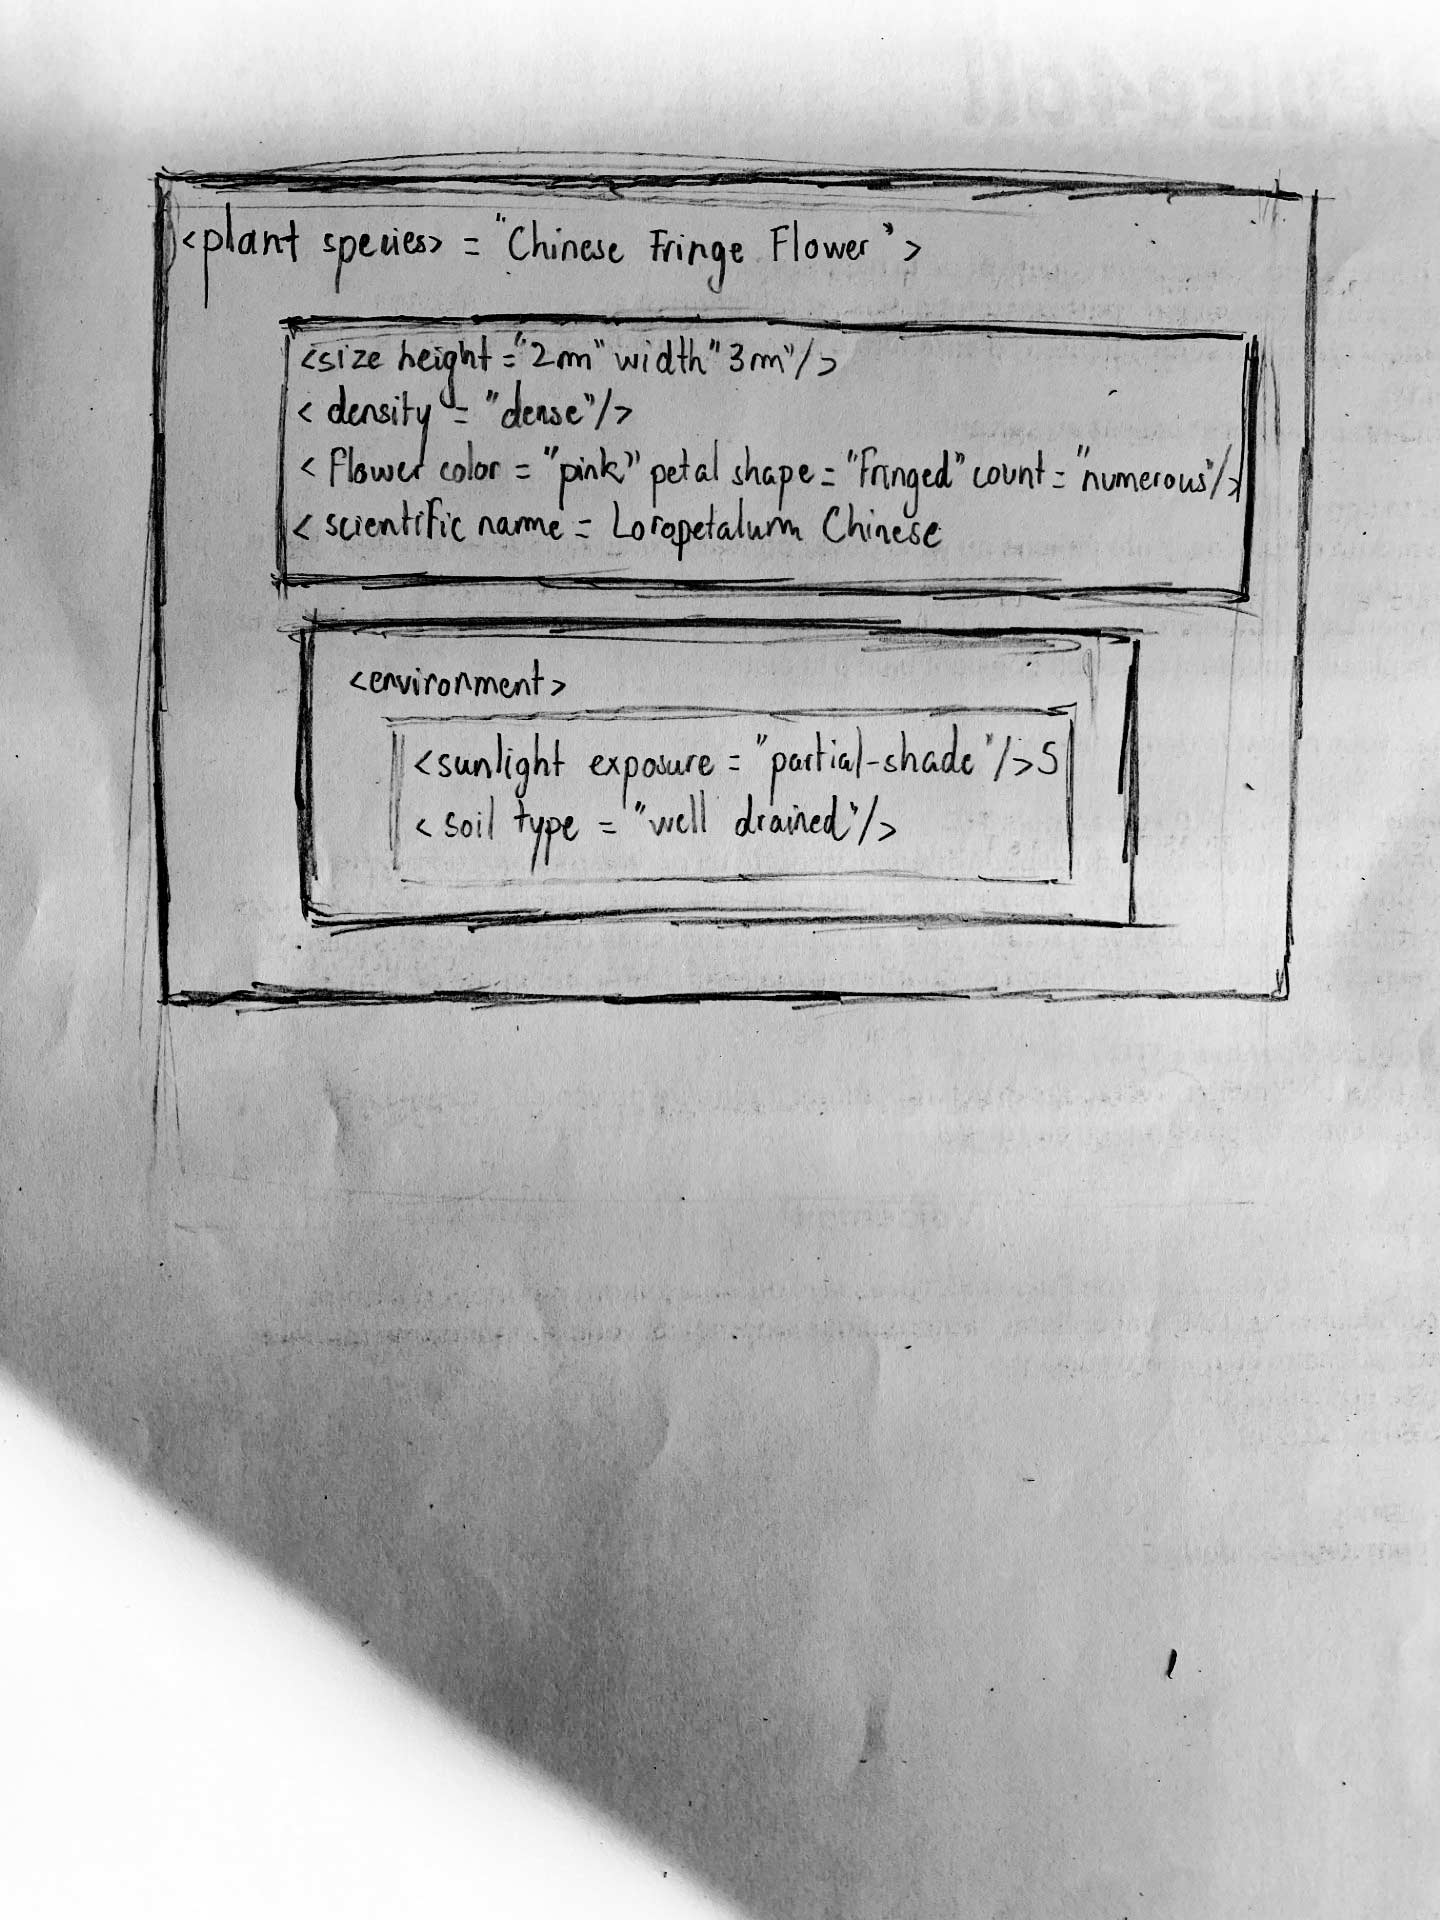 <plant species> = "Chinese Fringe Flower">
<size height = "2m" width "3m"/>
< density = "dense"/>
< Flower color = "pink" petal shape = "Fringed" count = "numerous"/>
< scientific name = Loropetalum Chinese
<environment>
<sunlight exposure = "partial-shade"/>S
< soil type = "well drained"/>